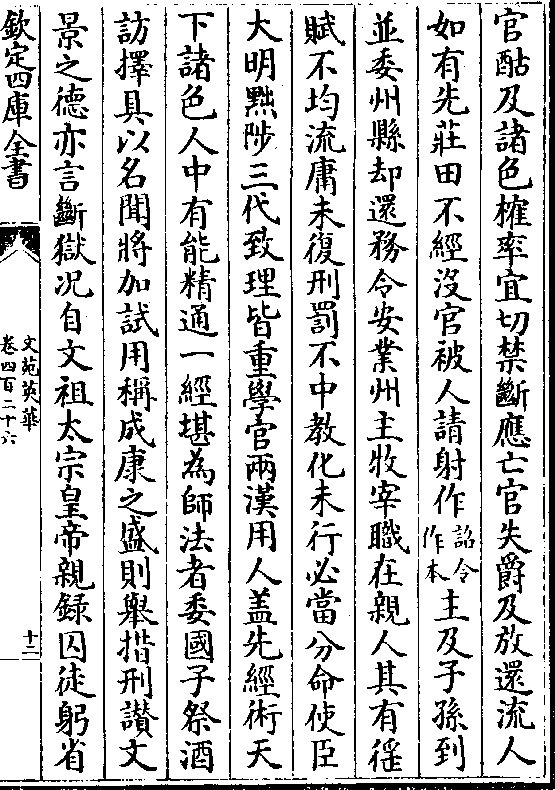 官酤及諸色榷率宜切禁斷應亡官失爵及放還流人
如有先莊田不經没官被人請射作詔令作本主及子孫到
並委州縣却還務令安業州主牧宰職在親人其有徭
賦不均流庸未復刑罰不中教化未行必當分命使臣
大明黜陟三代致理皆重學官兩漢用人盖先經術天
下諸色人中有能精通一經堪為師法者委國子祭酒
訪擇具以名聞將加試用稱成康之盛則舉措刑讃文
景之德亦言斷獄况自文祖太宗皇帝親録囚徒躬省
欽定四庫全書
文苑英華
卷四百二十六
十二